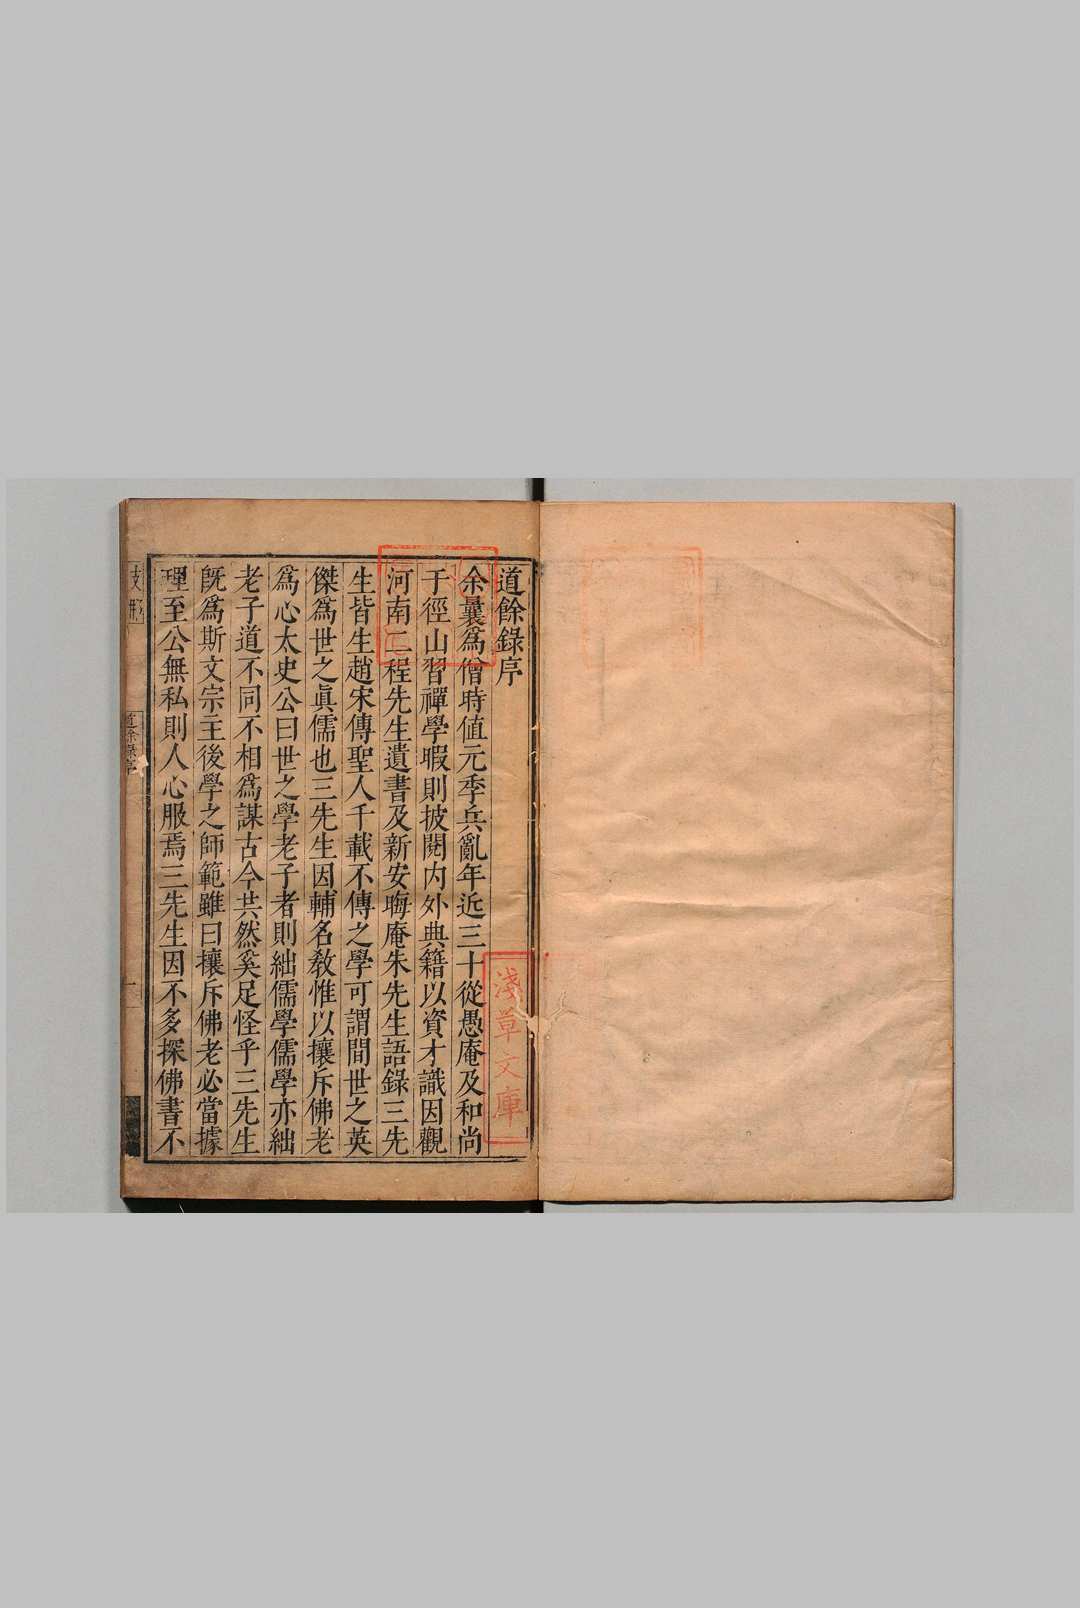 道餘錄序
余曩爲僧時值元季兵亂年近三十從愚庵及和尚
于徑山習禪學暇則披閱內外典籍以資才識因觀
河南二程先生遺書及新安晦庵朱先生語錄三先
生皆生趙宋傳聖人千載不傳之學可謂間世之英
傑爲世之眞儒也三先生因輔名敎惟以攘斥佛老
爲心太史公曰世之學老子者則絀儒學儒學亦絀
老子道不同不相爲謀古今共然奚足怪乎三先生
旣爲斯文宗主後學之師範雖曰攘斥佛老必當據
理至公無私則人心服焉三先生因不多探佛書不
道餘錄序
一
淺草文庫